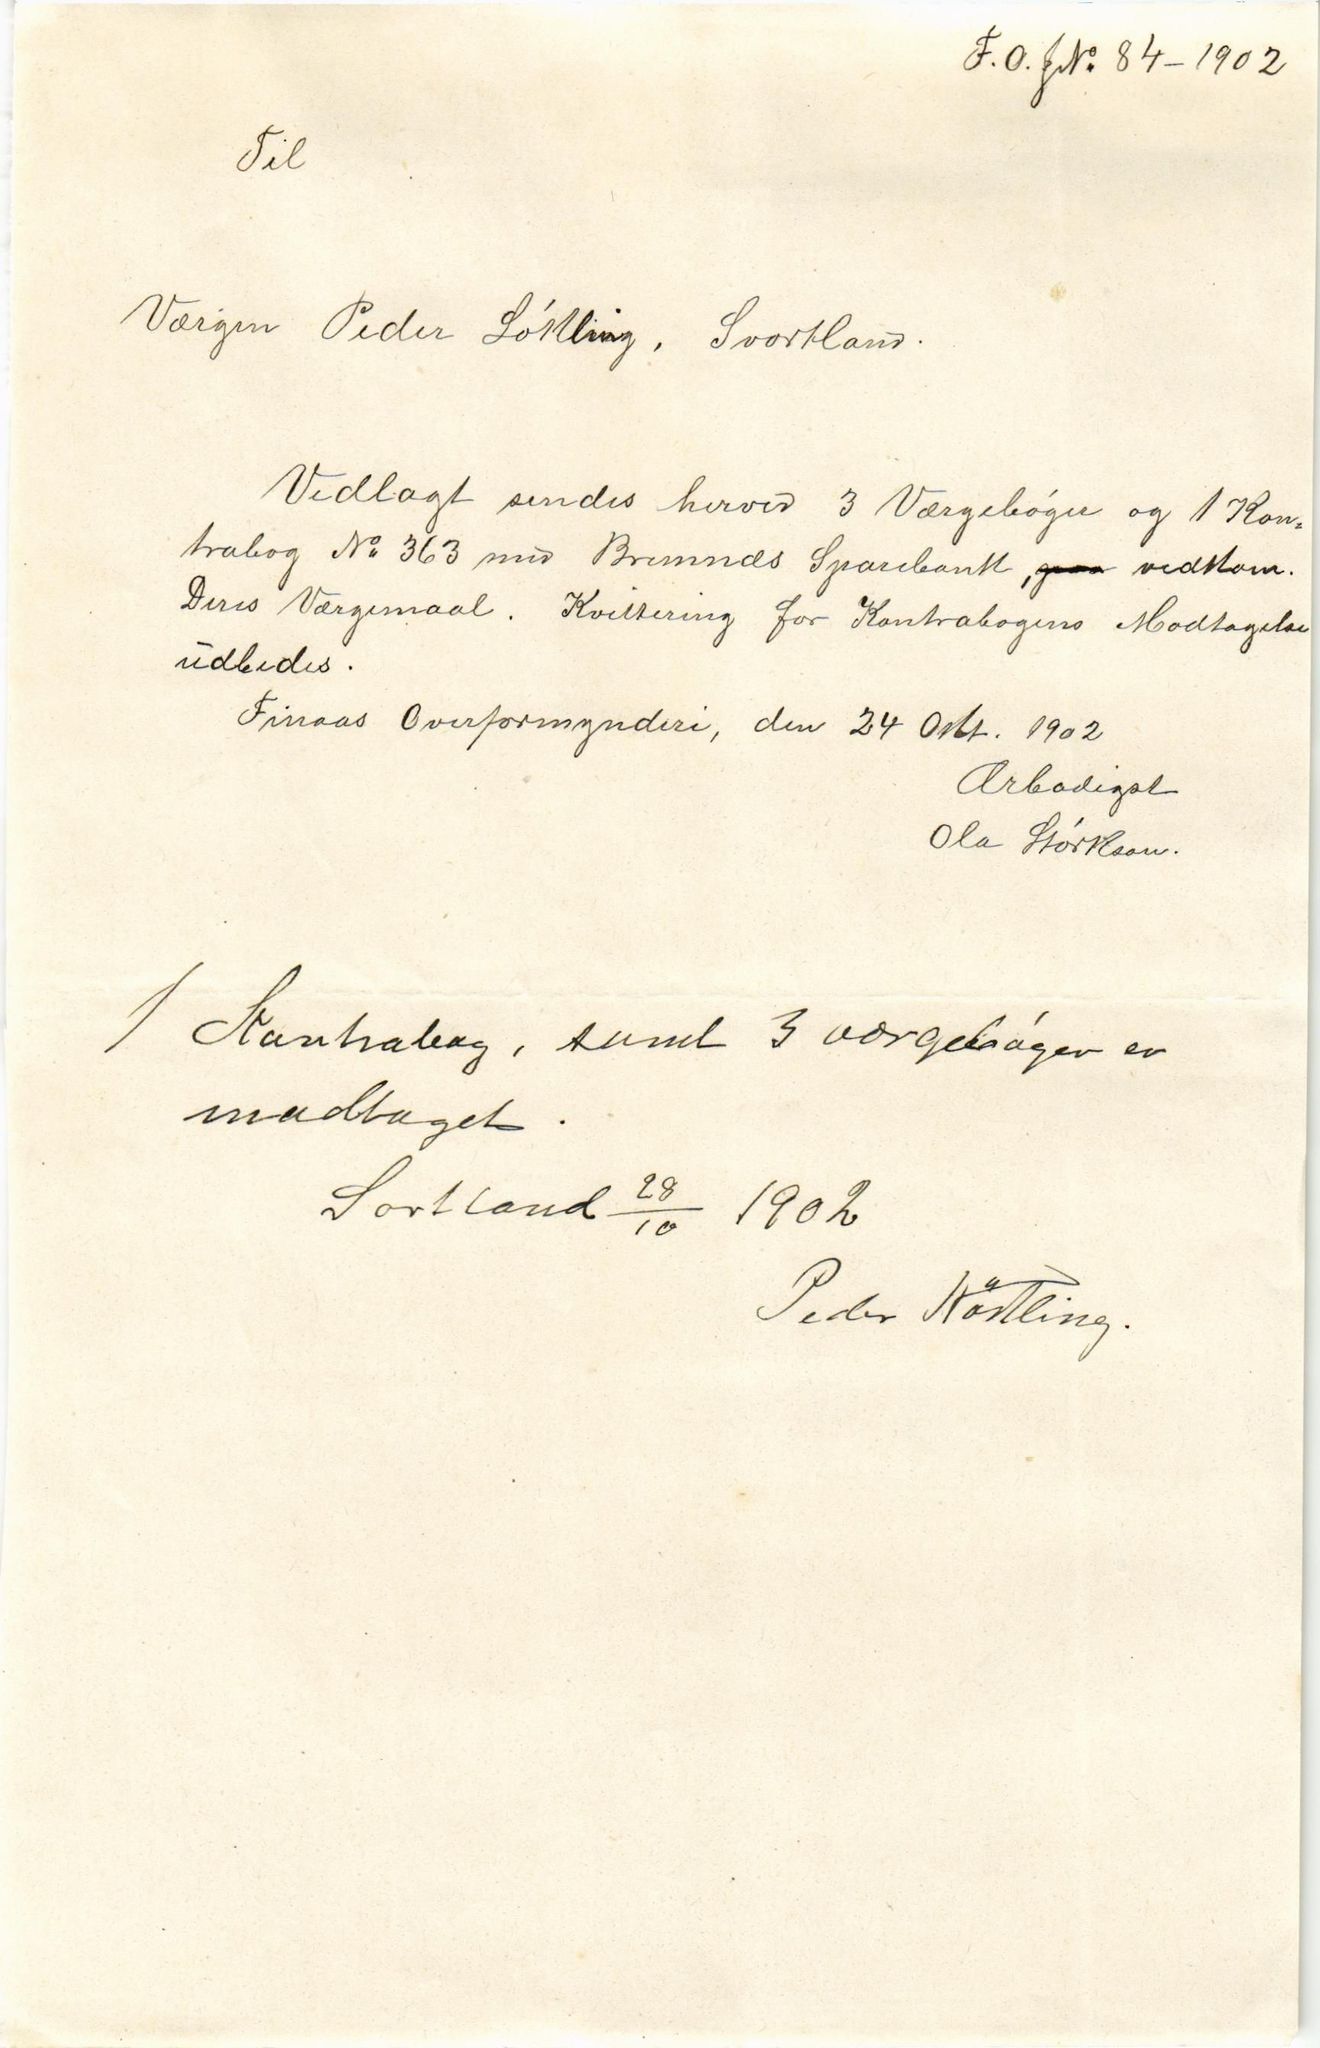 F.O. J№ 84-1902
Til
Værgen Peder Løkling, Svortland.
Vedlagt sendes herved 3 Værgebøger og 1 Kon-
trabog № 363 med Bremnæs Sparebank, vedkom.
Deres Værgemaal. Kvittering for Kontrabogens Modtagelse
udbedes.
Finaas Overformynderi, den 24 Okt. 1902
Ærbødigst
Ola Størkson.
1 Kontrabog, samt 3 værgebøger er
modtaget.
Sortland 28/10 1902
Peder